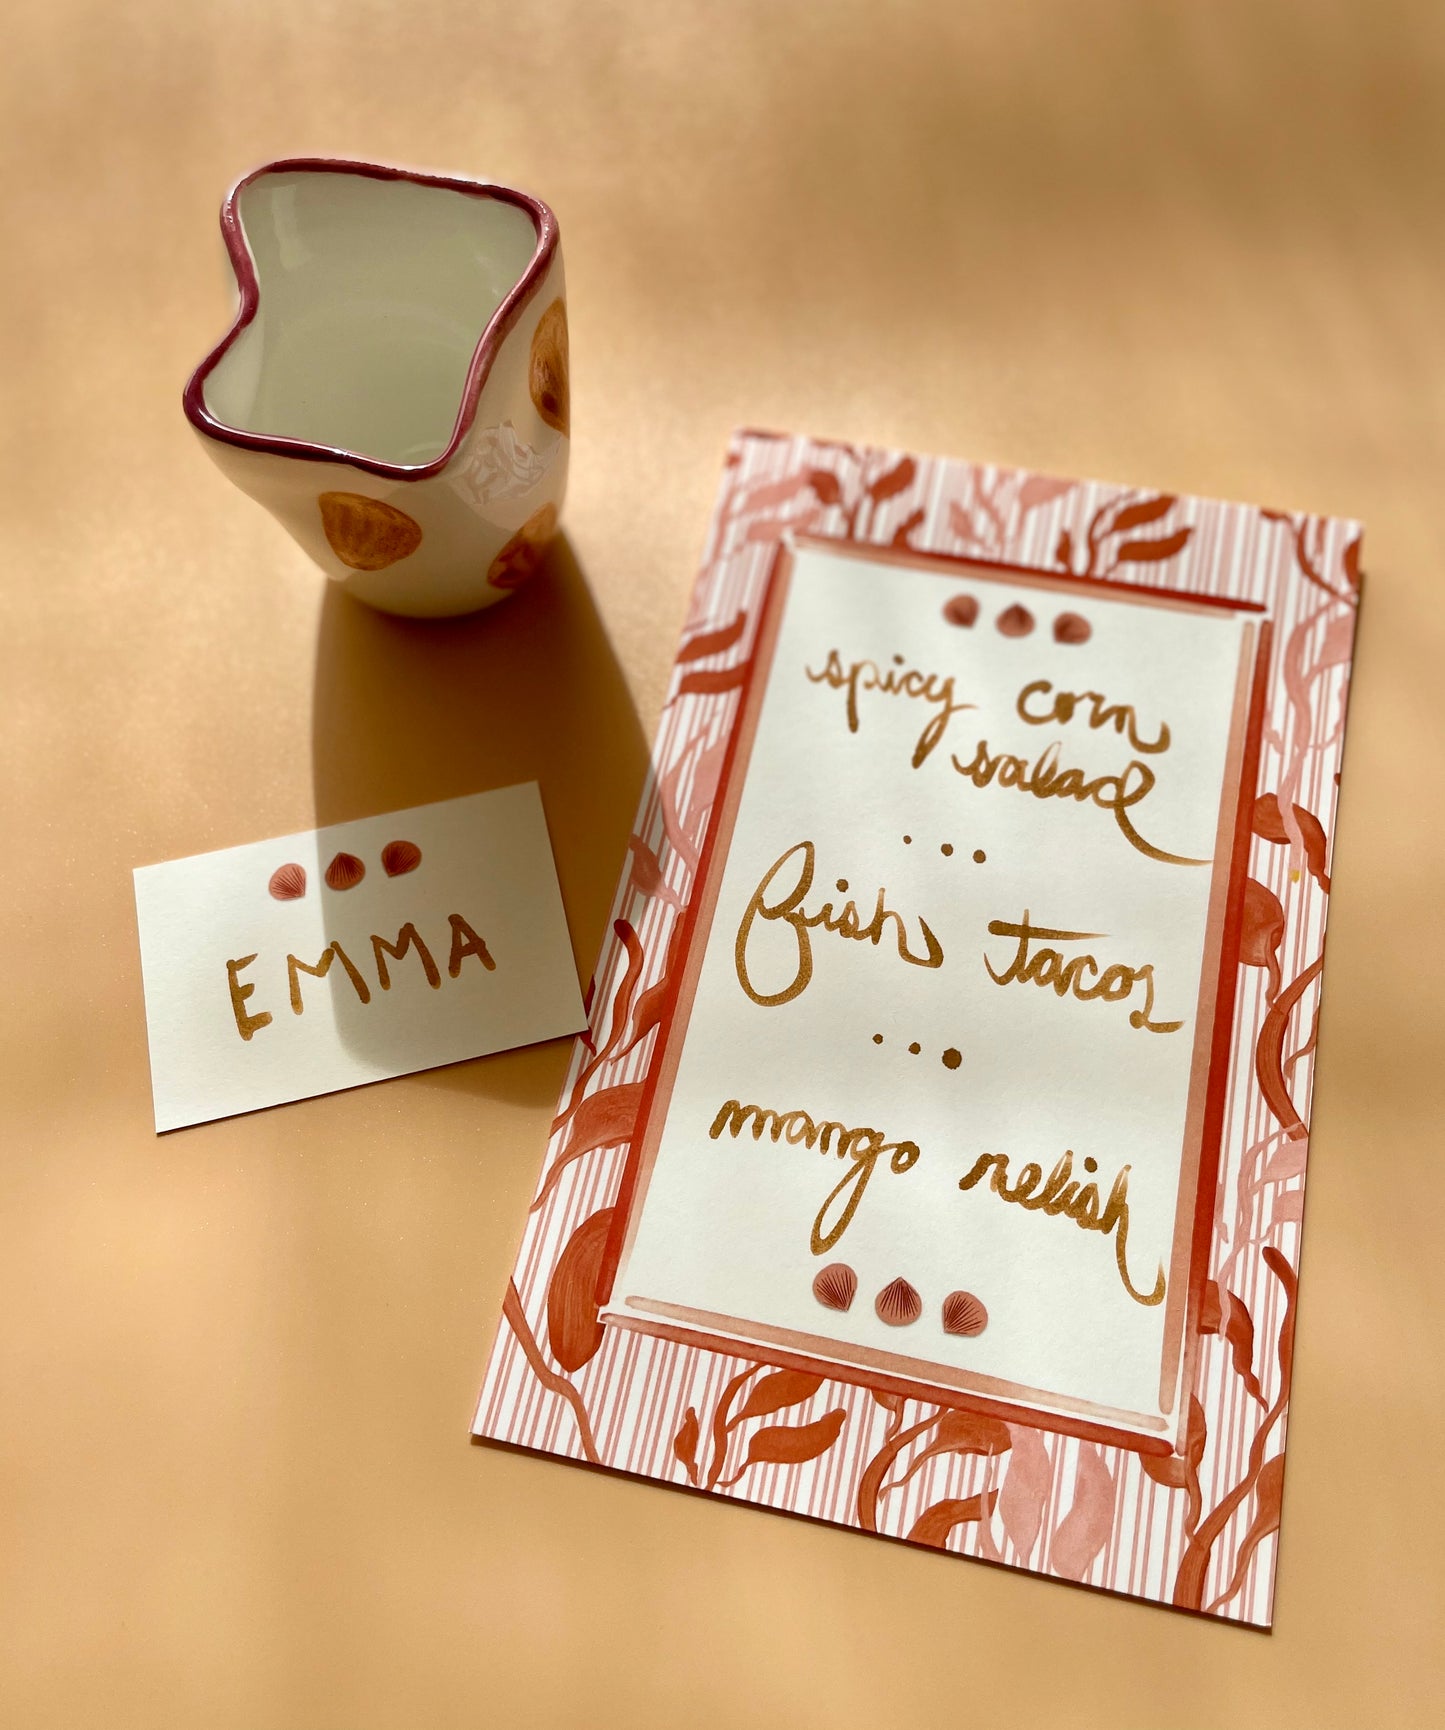 EMMA
spicy corn
salad
...
fish tacos
...
mango relish